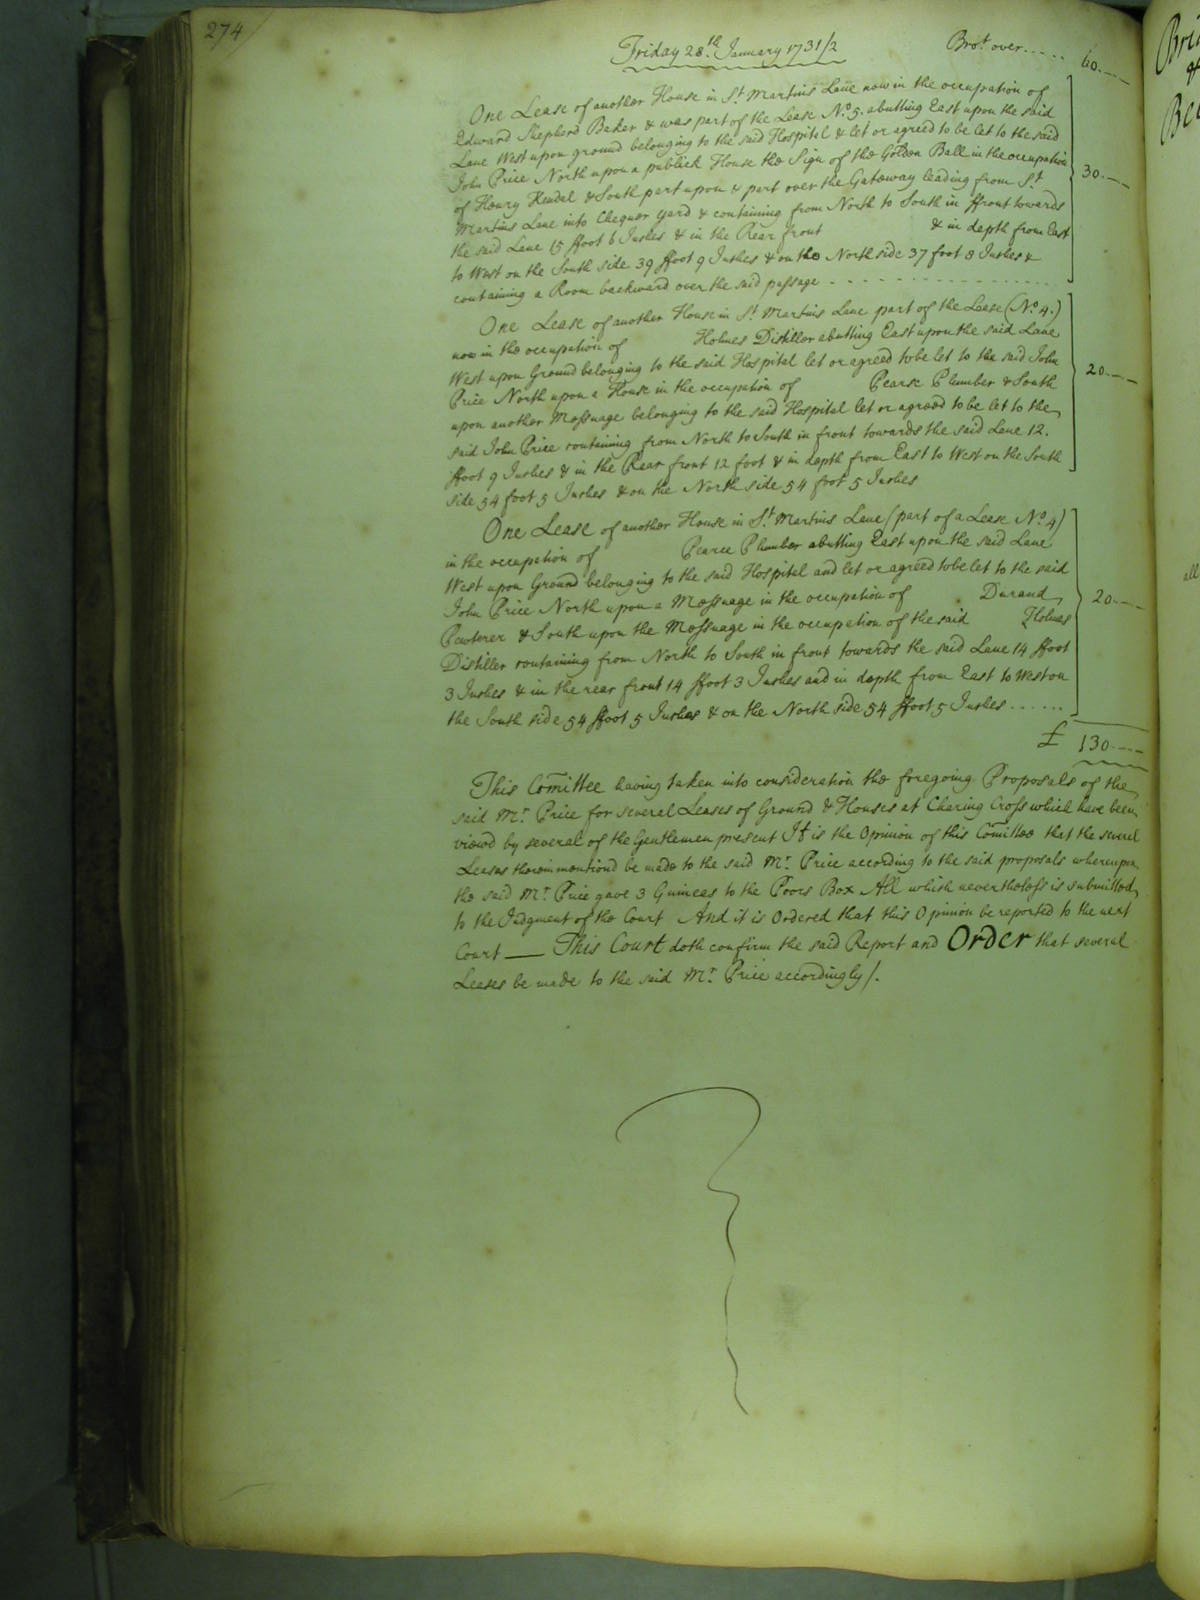 274
Friday 28.th January 1731/2
Bro.t over..... 60.---
One Lease of another House in S.t Martins Lane now in the occupation of
Edward Shepherd Baker & was part of the Lease N.o 5. abutting East upon the said
Lane West upon ground belonging to the said Hospital & let or agreed to be let to the said
John Price North upon a publick House the Sign of the Golden Ball in the occupation
of Henry Kendal & South part upon & part over the Gateway leading from S.t 30.---
Martins Lane into Chequer yard & containing from North to South in ffront towards
the said Lane 15 ffoot 6 Inches & in the Rear front & in depth from East
to West on the South side 39 ffoot 9 Inches & on the North side 37 foot 8 Inches &
containing a Room backward over the said passage
One Lease of another House in S.t Martins Lane part of the Lease (N.o 4.)
now in the occupation of Holmes Distiller abutting East upon the said Lane
West upon Ground belonging to the said Hospital let or agreed to be let to the said John
Price North upon a House in the occupation of Pearse Plumber & South 20.---
upon another Messuage belonging to the said Hospital let or agreed to be let to the
said John Price containing from North to South in front towards the said Lane 12.
ffoot 9 Inches & in the Rear front 12 foot & in depth from East to West on the South
side 54 foot 5 Inches & on the North side 54 foot 5 Inches
One Lease of another House in S.t Martins Lane (part of a Lease N.o 4)
in the occupation of Pearce Plumber abutting East upon the said Lane
West upon Ground belonging to the said Hospital and let or agreed to be let to the said
John Price North upon a Messuage in the occupation of Durand 20.---
Pewterer & South upon the Messuage in the occupation of the said Holmes
Distiller containing from North to South in front towards the said Lane 14 ffoot
3 Inches & in the rear front 14 ffoot 3 Inches and in depth from East to West on
the South side 54 ffoot 5 Inches & on the North side 54 ffoot 5 Inches ......
£ 130.---
This Comittee having taken into consideration the foregoing Proposals of the
said M.r Price for several Leases of Ground & Houses at Charing Cross which have been
viewd by several of the Gentlemen present It is the Opinion of this Comittee that the several
Leases therein mentiond be made to the said M.r Price according to the said proposals whereupon
the said M.r Price gave 3 Guineas to the Poors Box All which nevertheless is submitted
to the Judgment of the Court And it is Ordered that this Opinion be reported to the next
Court — This Court doth confirm the said Report and Order that several
Leases be made to the said M.r Price accordingly/.
all